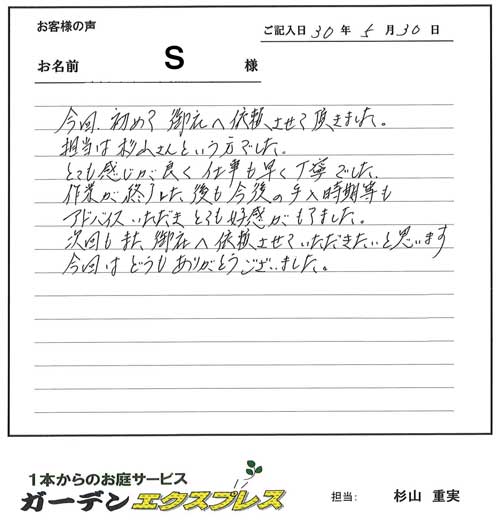 お客様の声
ご記入日 30 年 5 月 30 日
お名前 S 様
今回、初めて 御社へ依頼させて頂きました。
担当は杉山さんという方でした。
とても感じが良く 仕事も早く丁寧でした。
作業が終了した後も今後の手入時期等も
アドバイスいただき とても好感がもてました。
次回もまた 御社へ依頼させていただきたいと思います
今回は どうも ありがとうございました。
1本からのお庭サービス
ガーデンエクスプレス
担当: 杉山 重実